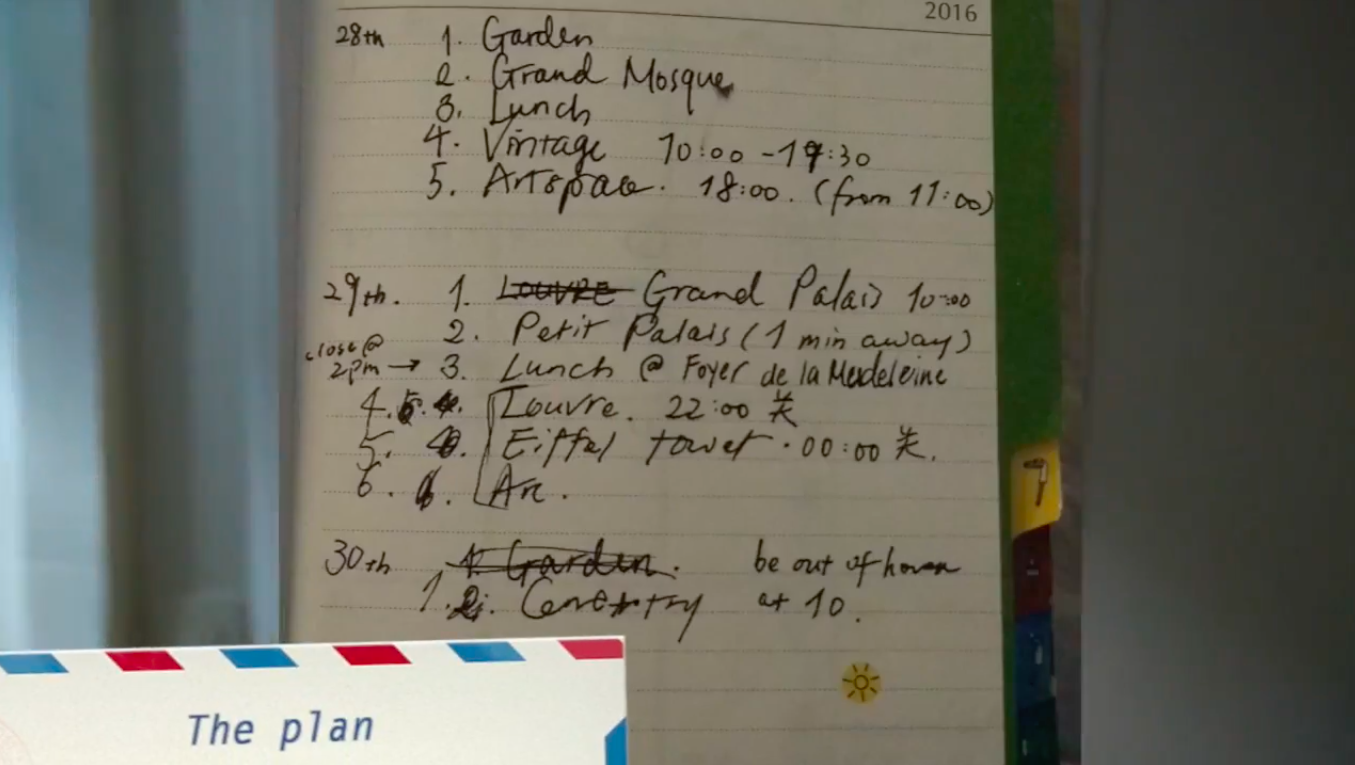 2016
28th 1. Garden
2. Grand Mosque
3. Lunch
4. Vintage 10:00 - 19:30
5. Artspace. 18:00. (from 11:00)
29th. 1. Louvre Grand Palais 10:00
2. Petit Palais (1 min away)
close @
2pm → 3. Lunch @ Foyer de la Madeleine
4. Louvre. 22:00 关
5. Eiffel tower. 00:00 关.
6. Arc.
30th 1. Garden. be out of
1. at 10.
The plan